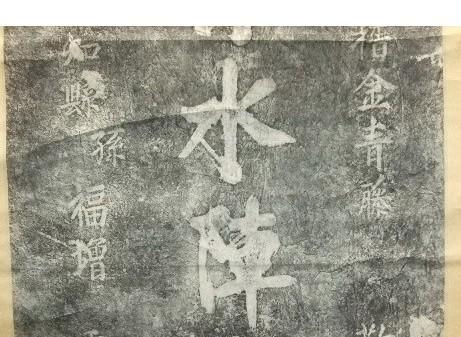 金青藤
水陣
知縣孫福增